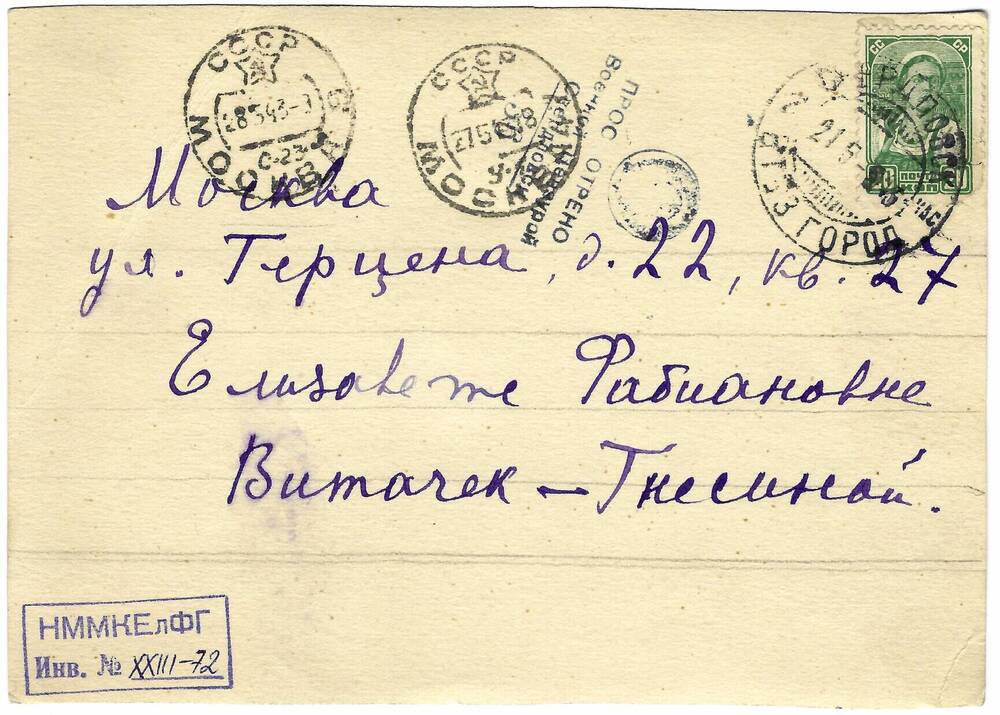 СССР
28 5 43
С-23
МОСКВА
СССР
27 5
МОСКВА
ПРОСМОТРЕНО
Военной Цензурой
СС СР
ПОЧТА
КОП
21 5
ГОРОД
Москва
ул. Герцена, д. 22, кв. 27
Елизавете Фабиановне
Витачек – Гнесиной.
НММКЕлФГ
Инв. № XXIII-72